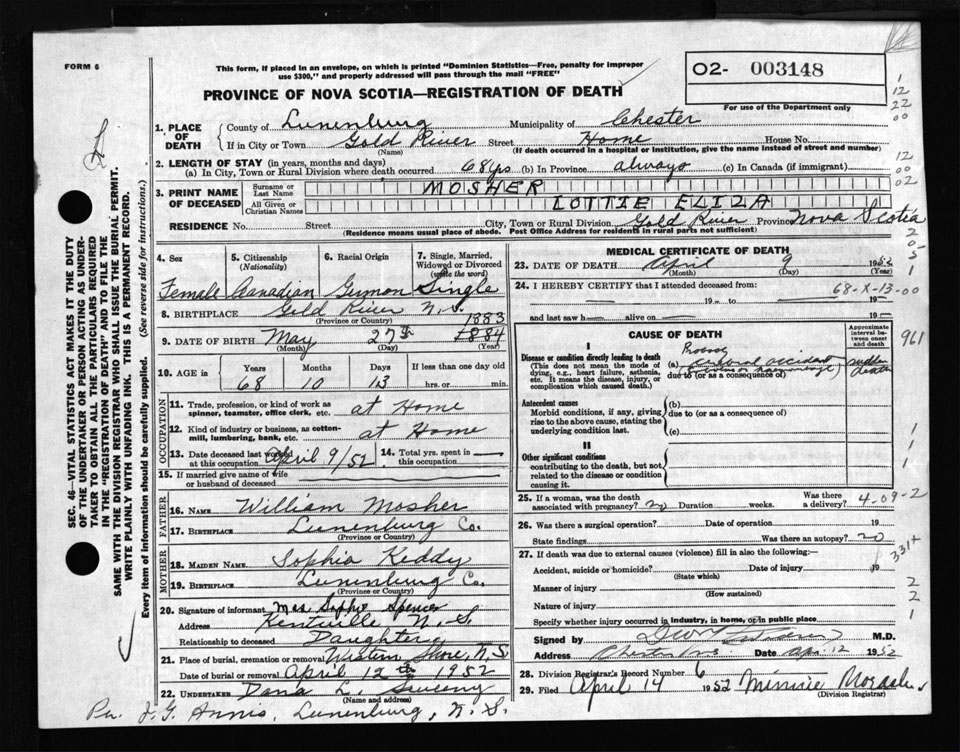 FORM 6
This form, if placed in an envelope, on which is printed "Dominion Statistics—Free, penalty for improper
use $300," and properly addressed will pass through the mail "FREE"
O2- 003148
For use of the Department only
PROVINCE OF NOVA SCOTIA—REGISTRATION OF DEATH
1. PLACE OF DEATH
County of Lunenburg Municipality of Chester
If in City or Town Gold River Street Home House No.
(Name) (If death occurred in a hospital or institution, give the name instead of street and number)
2. LENGTH OF STAY (in years, months and days)
(a) In City, Town or Rural Division where death occurred 68 yrs (b) In Province always (c) In Canada (if immigrant)
3. PRINT NAME OF DECEASED
Surname or Last Name MOSHER
All Given or Christian Names LOTTIE ELIZA
RESIDENCE No. Street City, Town or Rural Division Gold River Province Nova Scotia
(Residence means usual place of abode. Post Office Address for residents in rural parts not sufficient)
4. Sex Female
5. Citizenship (Nationality) Canadian
6. Racial Origin German
7. Single, Married, Widowed or Divorced (write the word) Single
8. BIRTHPLACE Gold River N.S.
(Province or Country)
1883
9. DATE OF BIRTH May 27th 1884
(Month) (Day) (Year)
10. AGE in Years Months Days If less than one day old
68 10 13 hrs. or min.
OCCUPATION
11. Trade, profession, or kind of work as spinner, teamster, office clerk, etc. at Home
12. Kind of industry or business, as cotton-mill, lumbering, bank, etc. at Home
13. Date deceased last worked at this occupation April 9/52
14. Total yrs. spent in this occupation
15. If married give name of wife or husband of deceased
FATHER
16. NAME William Mosher
17. BIRTHPLACE Lunenburg Co.
(Province or Country)
MOTHER
18. MAIDEN NAME Sophia Keddy
19. BIRTHPLACE Lunenburg Co.
(Province or Country)
20. Signature of informant Mrs Sophie Spencer
Address Kentville N.S.
Relationship to deceased Daughter
21. Place of burial, cremation or removal Western Shore, N.S.
Date of burial or removal April 12th 1952
22. UNDERTAKER Dana L. Sweeny
(Name and address)
Per J.G. Annis, Lunenburg, N.S.
MEDICAL CERTIFICATE OF DEATH
23. DATE OF DEATH April 9 1952
(Month) (Day) (Year)
24. I HEREBY CERTIFY that I attended deceased from:
68-X-13-00
19 to 19
and last saw h alive on 19
CAUSE OF DEATH
Approximate interval between onset and death
I
Disease or condition directly leading to death
(This does not mean the mode of dying, e.g., heart failure, asthenia, etc. It means the disease, injury, or complication which caused death.)
(a) cerebral accident
due to (or as a consequence of)
sudden death
Antecedent causes
Morbid conditions, if any, giving rise to the above cause, stating the underlying condition last.
(b)
due to (or as a consequence of)
(c)
II
Other significant conditions contributing to the death, but not related to the disease or condition causing it.
25. If a woman, was the death associated with pregnancy? no Duration weeks. Was there a delivery? 4-09-2
26. Was there a surgical operation? Date of operation 19
State findings Was there an autopsy? no
27. If death was due to external causes (violence) fill in also the following:
Accident, suicide or homicide? Date of injury 19
(State which)
Manner of injury
(How sustained)
Nature of injury
Specify whether injury occurred in industry, in home, or in public place
Signed by M.D.
Address Chester N.S. Date Apr. 12 1952
28. Division Registrar's Record Number 6
29. Filed April 14 1952 Minnie
(Division Registrar)
SEC. 46—VITAL STATISTICS ACT MAKES IT THE DUTY
OF THE UNDERTAKER OR PERSON ACTING AS UNDER-
TAKER TO OBTAIN ALL THE PARTICULARS REQUIRED
IN THE "REGISTRATION OF DEATH" AND TO FILE THE
SAME WITH THE DIVISION REGISTRAR WHO SHALL ISSUE THE BURIAL PERMIT.
WRITE PLAINLY WITH UNFADING INK. THIS IS A PERMANENT RECORD.
Every item of information should be carefully supplied. (See reverse side for instructions.)
1
12
22
00
12
00
02
2
0
5
1
961
1
1
1
331+
2
2
1